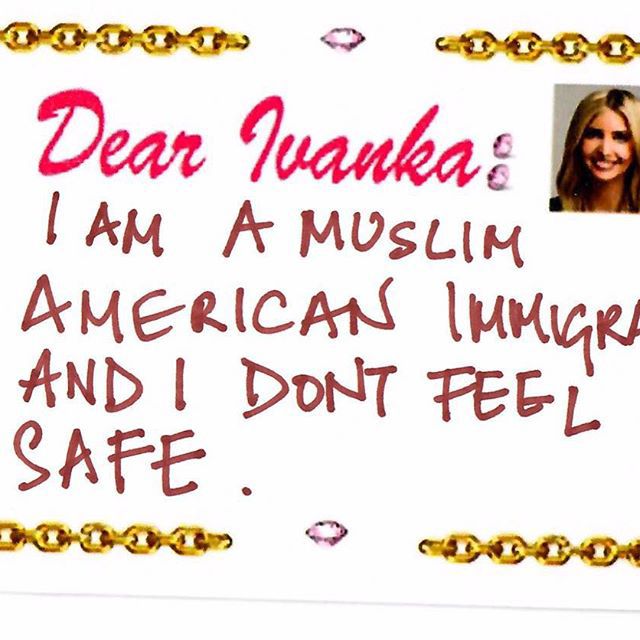 Dear Ivanka:
I AM A MUSLIM
AMERICAN IMMIGRA
AND I DONT FEEL
SAFE.